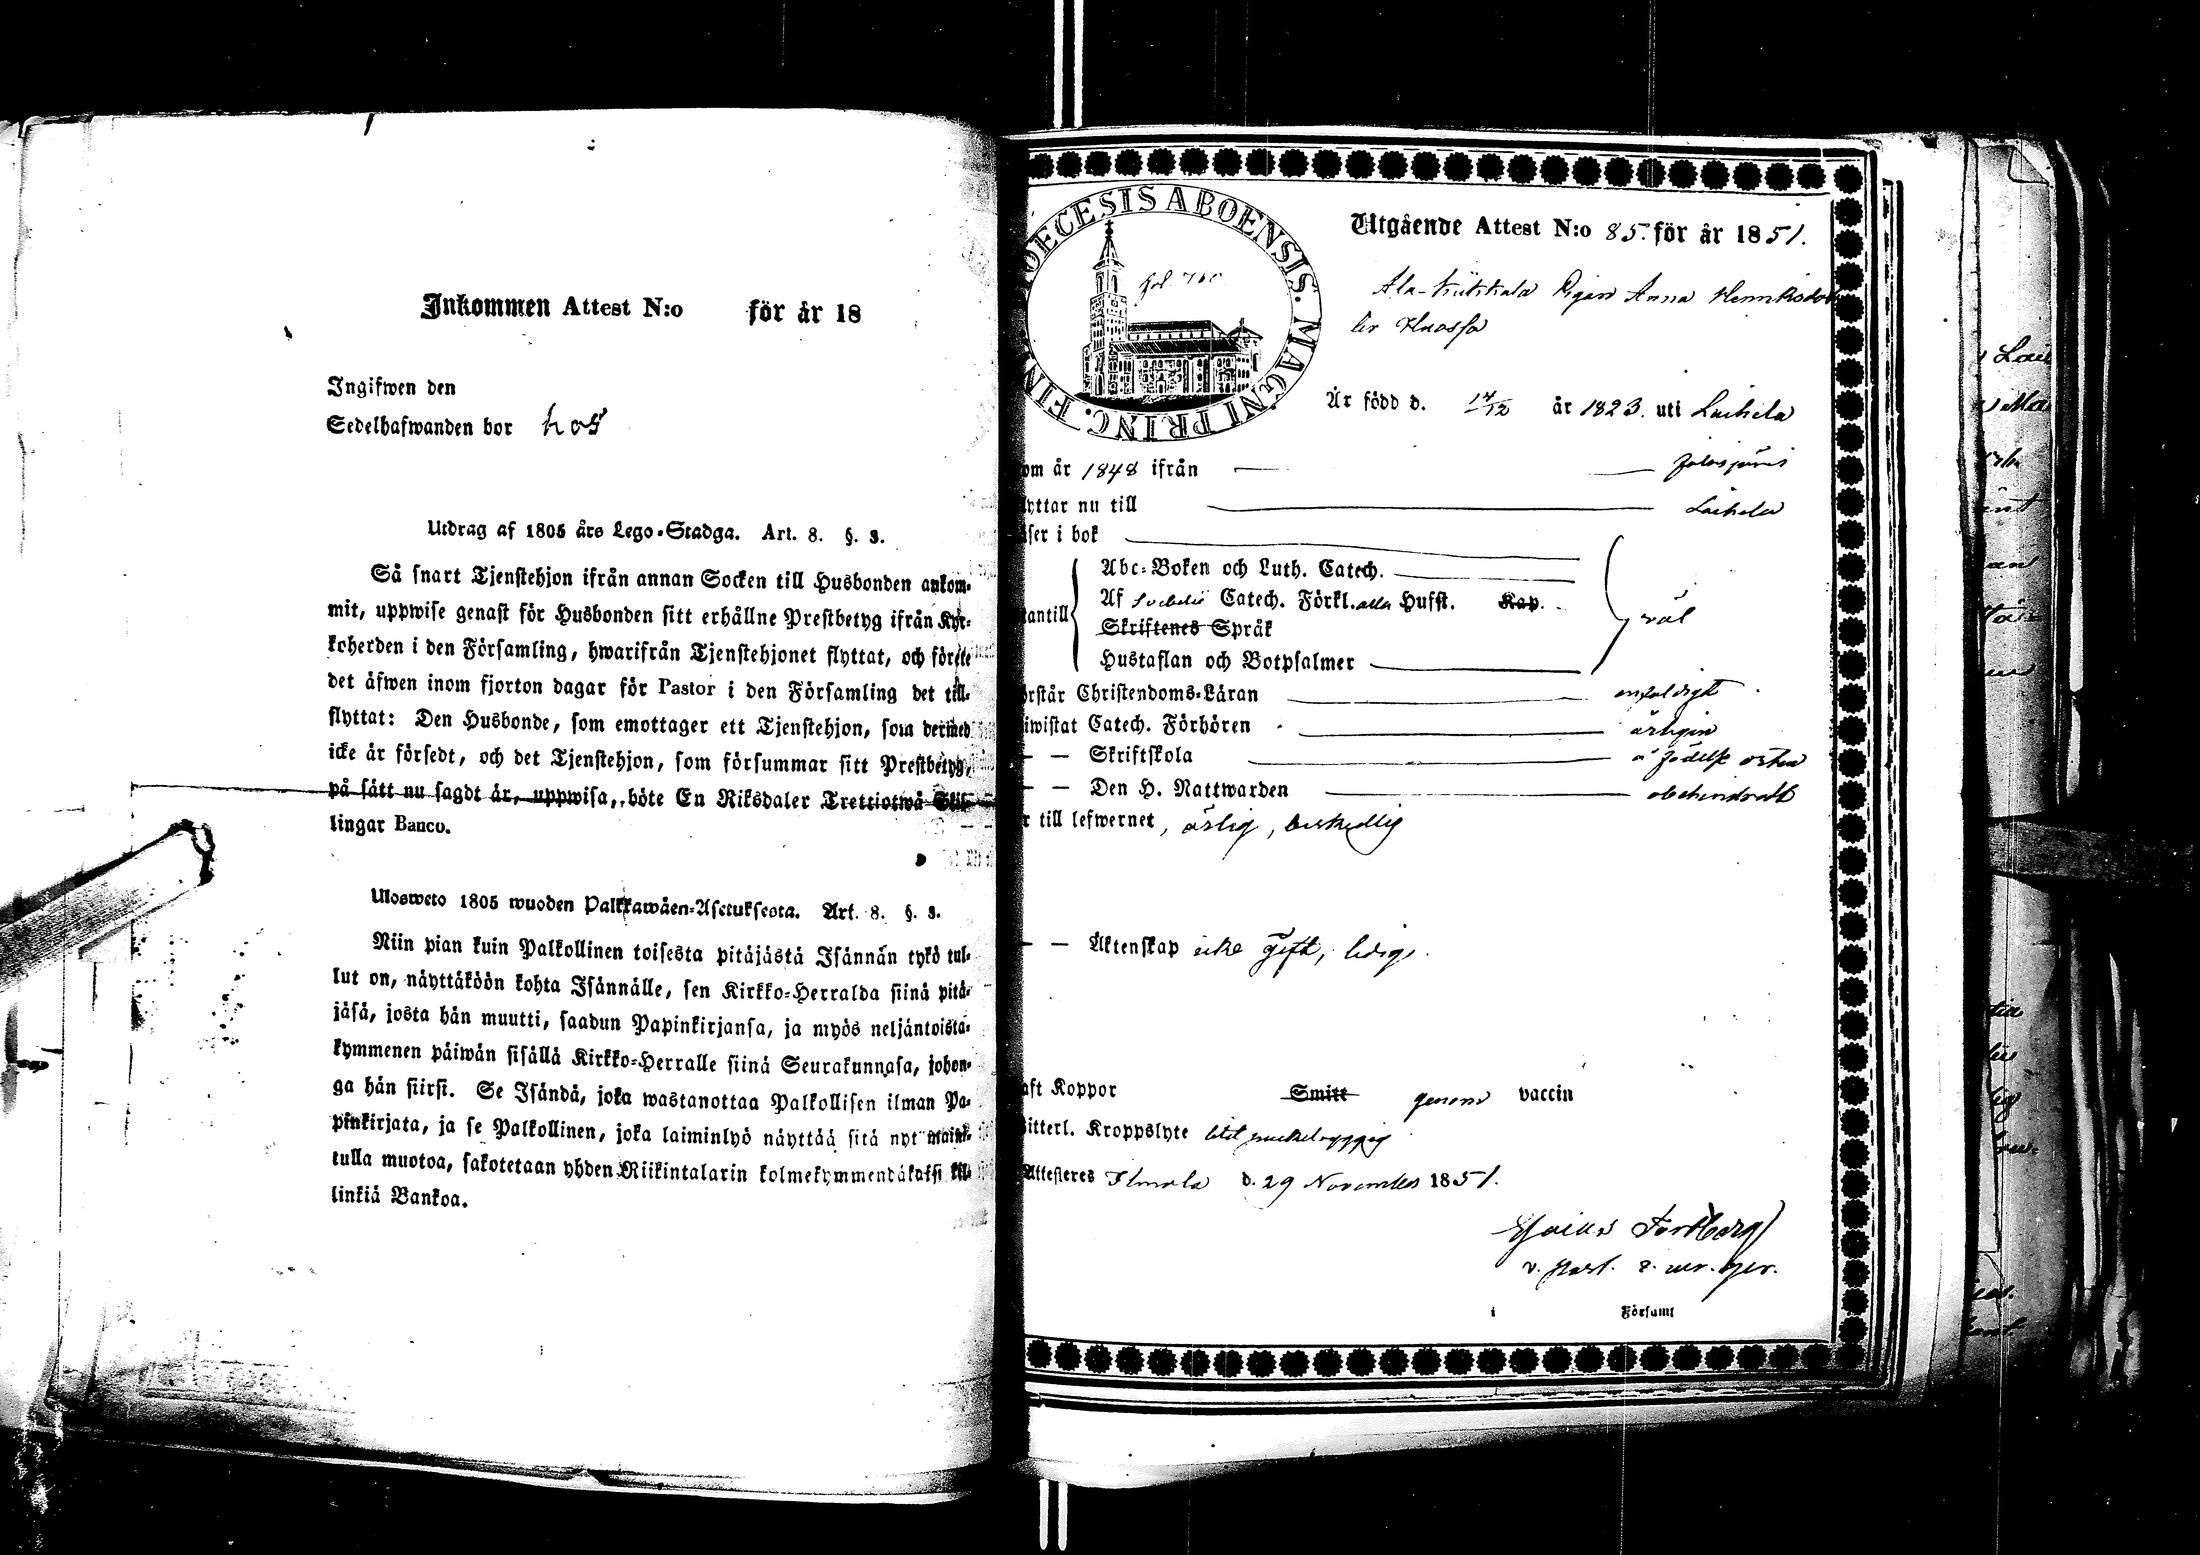 Inkommen Attest N:o för år 18
Ingifwen den
Sedelhafwanden bor hos
Utdrag af 1805 års Lego-Stadga. Art. 8. §. 3.
Så snart Tjenstehjon ifrån annan Socken till Husbonden ankom-
mit, uppwise genast för Husbonden sitt erhållne Prestbetyg ifrån Kyr-
koherden i den Församling, hwarifrån Tjenstehjonet flyttat, och förete
det äfwen inom fjorton dagar för Pastor i den Församling det till-
flyttat: Den Husbonde, som emottager ett Tjenstehjon, som dermed
icke är försedt, och det Tjenstehjon, som försummar sitt Prestbetyg,
på sätt nu sagdt är, uppwisa, böte En Riksdaler Trettiotwå Skil-
lingar Banco.
Ulosweto 1805 wuoden Palkkawäen-Asetuksesta. Art. 8. §. 3.
Niin pian kuin Palkollinen toisesta pitäjästä Isännän tykö tul-
lut on, näyttäköön kohta Isännälle, sen Kirkko-Herralda siinä pitä-
jäsä, josta hän muutti, saadun Papinkirjansa, ja myös neljäntoista-
kymmenen päiwän sisällä Kirkko-Herralle siinä Seurakunnasa, johon-
ga hän siirsi. Se Isändä, joka wastanottaa Palkollisen ilman Pa-
pinkirjata, ja se Palkollinen, joka laiminlyö näyttää sitä nyt maini-
tulla muotoa, sakotetaan yhden Riikintalarin kolmekymmendäkaksi kil-
linkiä Bankoa.
OECESIS ABOENSIS. MAGNI PRINC. FIN
fol. 760
Utgående Attest N:o 85. för år 1851.
Pigan Anna Henriksdot
ter
Är född d. 14/12 år 1823. uti Laihela
om år 1848 ifrån Jalasjärvi
lyttar nu till Laihela
äser i bok
antill
Abc-Boken och Luth. Catech.
Af Catech. Förkl. alla Husst. Kap.
Skriftenes Språk
Hustaflan och Botpsalmer
väl
örstår Christendoms-Läran enfaldigt
iwistat Catech. Förhören årligen
— — Skriftskola å födelse orten
— — Den H. Nattwarden obehindradt
r till lefwernet, ärlig, beskedlig
— — Äktenskap icke gift, ledig.
aft Koppor Smitt genom vaccin
itterl. Kroppslyte
Attesteres Ilmola d. 29 November 1851.
Forsberg
v. Past.
i Församl